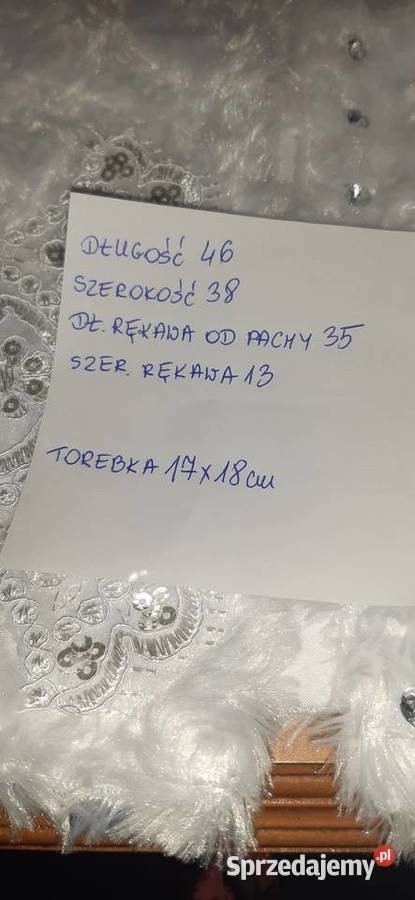 DŁUGOŚĆ 46
SZEROKOŚĆ 38
DŁ. RĘKAWA OD PACHY 35
SZER. RĘKAWA 13
TOREBKA 17x18cm
Sprzedajemy.pl